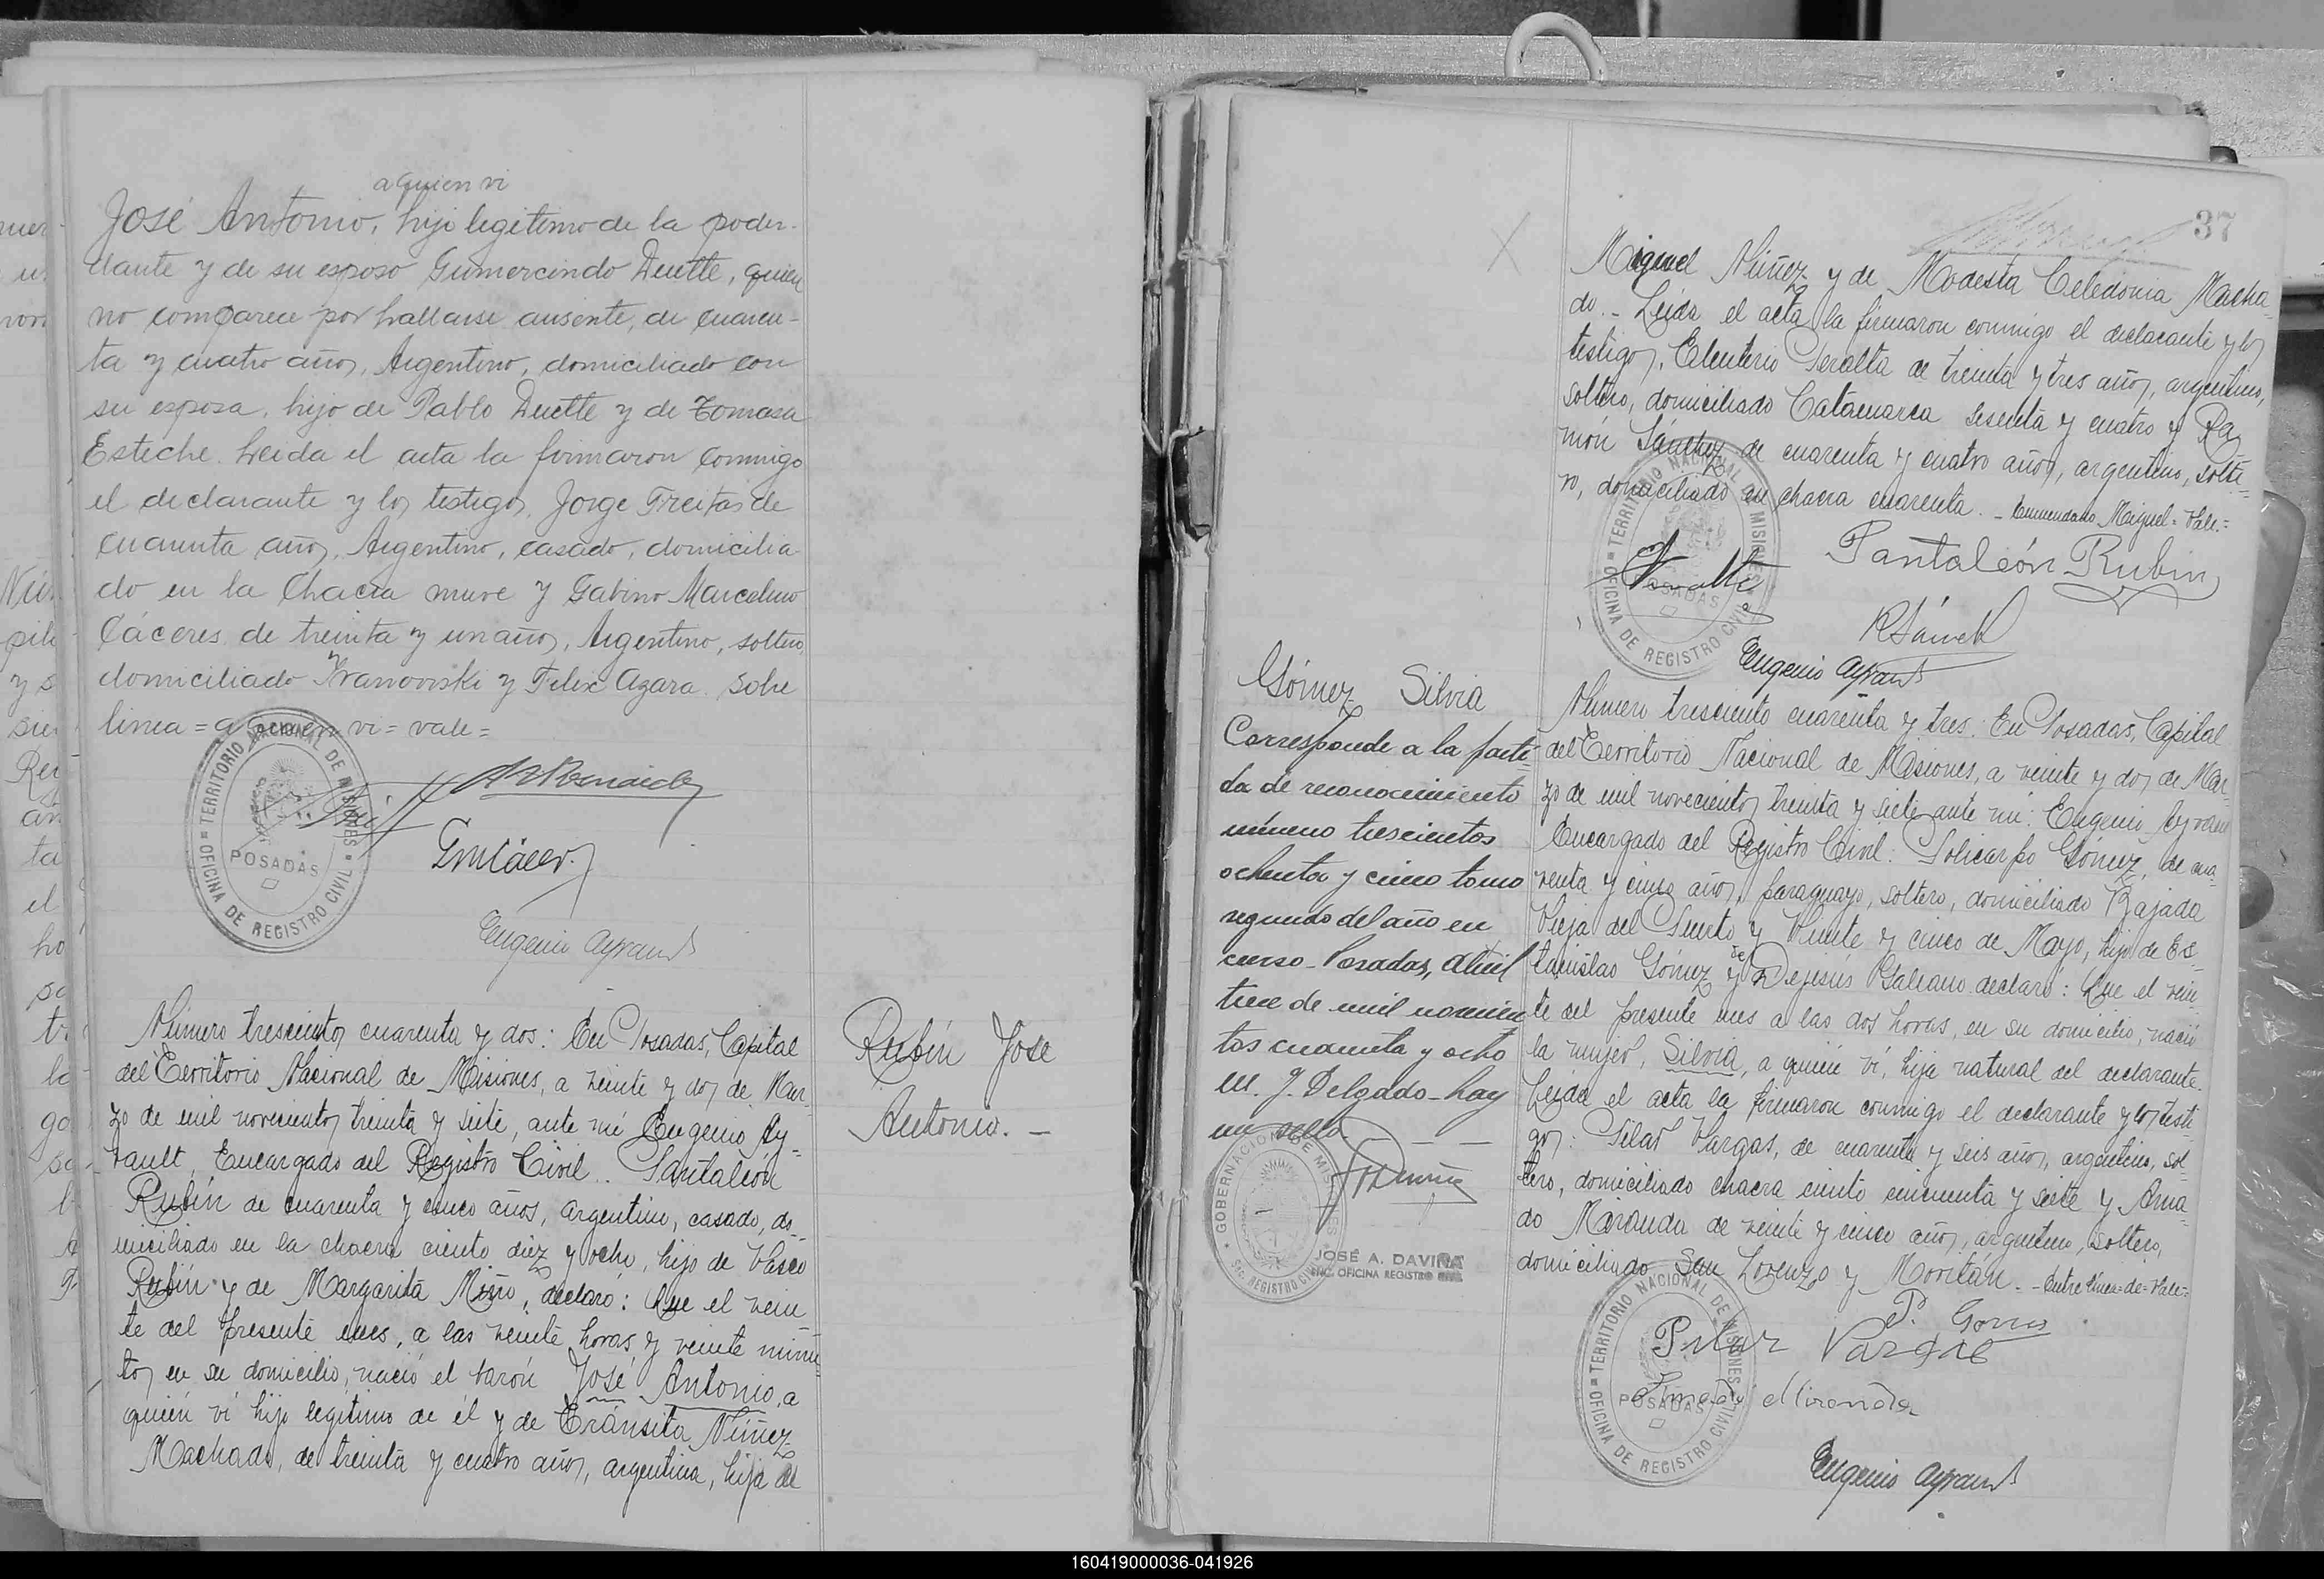 a quien vi
José Antonio, hijo legitimo de la poder-
dante y de su esposo Gumercindo Duette, quien
no comparece por hallarse ausente, de cuaren-
ta y cuatro años, Argentino, domiciliado con
su esposa, hijo de Pablo Duette y de Tomasa
Esteche. Leida el acta la firmaron conmigo
el declarante y los testigos, Jorge Freitas de
cuarenta años, Argentino, casado, domicilia-
do en la Chacra nueve y Gabino Marcelino
Cáceres de treinta y un años, Argentino, soltero
domiciliado Ivanovski y Felix Azara. Sobre
linea = a quien vi = vale =
TERRITORIO NACIONAL DE MISIONES
POSADAS
OFICINA DE REGISTRO CIVIL
Eugenio Ayrault
Número trescientos cuarenta y dos: En Posadas, Capital
del Territorio Nacional de Misiones, a veinte y dos de Mar-
zo de mil novecientos treinta y siete, ante mi Eugenio Ay-
rault, Encargado del Registro Civil. Pantaleón
Rubín de cuarenta y cinco años, argentino, casado, do-
miciliado en la chacra ciento diez y ocho, hijo de Vasco
Rubín y de Margarita Miño, declaró: Que el vein-
te del presente mes, a las veinte horas y veinte minu-
tos en su domicilio, nació el varón José Antonio, a
quién ví hijo legítimo de él y de Tránsita Núñez
Machado, de treinta y cuatro años, argentina, hija de
Rubín José
Antonio. -
37
Miguel Núñez y de Modesta Celedonia Macha-
do. - Leída el acta la firmaron conmigo el declarante y los
testigos, Eleuterio Peralta de treinta y tres años, argentino,
soltero, domiciliado Catamarca sesenta y cuatro y Ra-
món Sánchez de cuarenta y cuatro años, argentino, solte-
ro, domiciliado en chacra cuarenta. - Enmendado Miguel = Vale. =
TERRITORIO NACIONAL DE MISIONES
POSADAS
OFICINA DE REGISTRO CIVIL
Pantaleón Rubin
R Sánch
Eugenio Ayrault
Gómez Silvia
Corresponde a la parti-
da de reconocimiento
número trescientos
ochenta y cinco tomo
segundo del año en
curso - Posadas, Abril
trece de mil novecien
tos cuarenta y ocho
M. J. Delgado - hay
un sello
GOBERNACION DE MISIONES
JOSÉ A. DAVIÑA
ENC. OFICINA REGISTRO CIVIL
Número trescientos cuarenta y tres: En Posadas, Capital
del Territorio Nacional de Misiones, a veinte y dos de Mar-
zo de mil novecientos treinta y siete ante mi: Eugenio Ayrault
Encargado del Registro Civil: Policarpo Gómez, de cua-
renta y cinco años, paraguayo, soltero, domiciliado Bajada
Vieja del Puerto y Veinte y cinco de Mayo, hijo de Es-
tanislao Gómez y de Dejesús Galiano declaró: Que el vein-
te del presente mes a las dos horas, en su domicilio, nació
la mujer, Silvia, a quién ví, hija natural del declarante.
Leída el acta la firmaron conmigo el declarante y los testi-
gos: Pilar Vargas, de cuarenta y seis años, argentino, sol-
tero, domiciliado chacra ciento cincuenta y siete y Ama-
do Miranda de veinte y cinco años, argentino, soltero,
domiciliado San Lorenzo y Moritán. - Entre línea = de = Vale =
TERRITORIO NACIONAL DE MISIONES
POSADAS
OFICINA DE REGISTRO CIVIL
P. Gomes
Pilar Vargas
Amado Miranda
Eugenio Ayrault
160419000036-041926